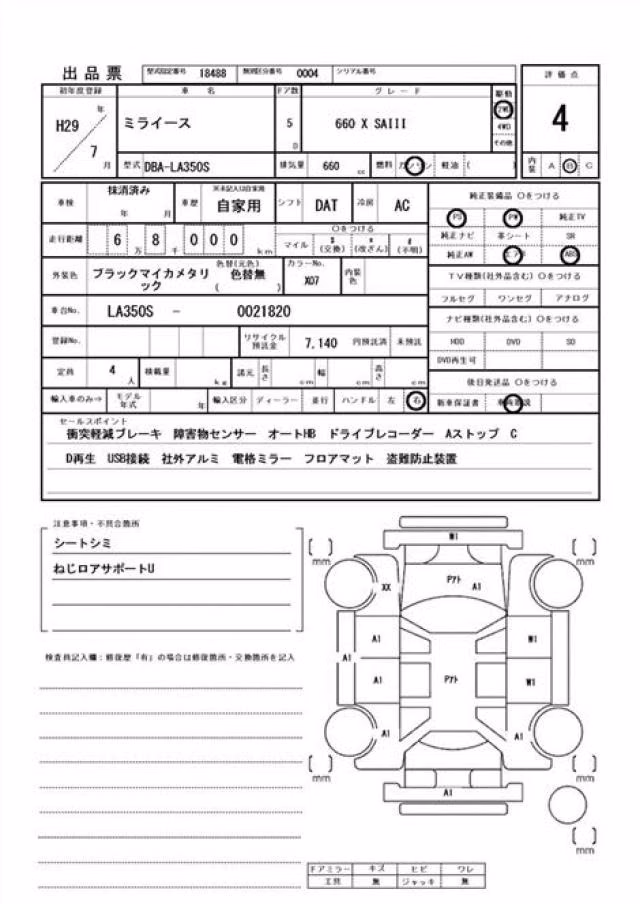 出品票 型式指定番号 18488 類別区分番号 0004 シリアル番号
初年度登録 車 名 ドア数 グレード 駆動 評価点
H29 年 7 月
ミライース 5 D 660 X SAIII 2WD 4WD その他 4
型式 DBA-LA350S 排気量 660 cc 燃料 ガソリン 軽油 ( ) 内装 A B C
車検 抹消済み 年 月 車歴 自家用 シフト DAT 冷房 AC
純正装備品 〇をつける
PS PW 純正TV
純正ナビ 革シート SR
純正AW エアB ABS
走行距離 6 万 8 千 0 0 0 km 〇をつける マイル $ (交換) * (改ざん) # (不明)
外装色 ブラックマイカメタリック 色替(元色) 色替無 ( ) カラーNo. X07 内装色
TV種類(社外品含む) 〇をつける
フルセグ ワンセグ アナログ
車台No. LA350S - 0021820
ナビ種類(社外品含む) 〇をつける
HDD DVD SD
DVD再生可
登録No. リサイクル預託金 7,140 円預託済 未預託
定員 4 人 積載量 kg 諸元 長さ cm 幅 cm 高さ cm
後日発送品 〇をつける
新車保証書
輸入車のみ⇒ モデル年式 年 輸入区分 ディーラー 並行 ハンドル 左 右
セールスポイント
衝突軽減ブレーキ 障害物センサー オートHB ドライブレコーダー Aストップ C
D再生 USB接続 社外アルミ 電格ミラー フロアマット 盗難防止装置
注意事項・不具合箇所
シートシミ
ねじロアサポートU
検査員記入欄:修復歴「有」の場合は修復箇所・交換箇所を記入
W1
[ ] mm [ ] mm
XX Pアト A1
A1 W1
A1
A1 Pアト W1
A1 A1
[ ] mm [ ] mm
A1
[ ] mm
ドアミラー キズ ヒビ ワレ
工具 無 ジャッキ 無